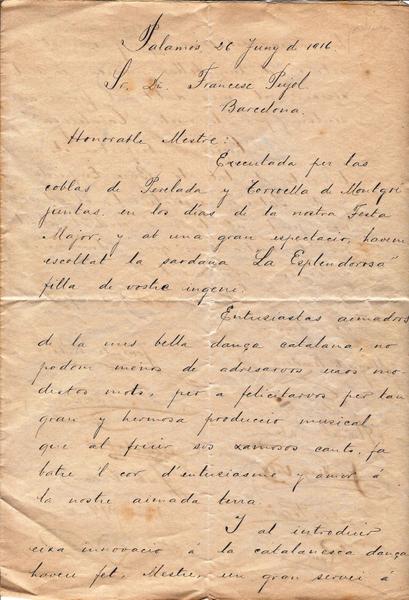 Palamós 26 Juny d 1916
Sr. Dn. Francesc Pujol.
Barcelona.
Honorable Mestre:
Executada per las
coblas de Perelada y Torroella de Montgri
juntas, en los dias de la nostra Festa
Major, y ab una gran espectacio, havem
escoltat la sardana "La Esplendorosa"
filla de vostre ingeni.
Entusiastas aimadors
de la mes bella dança catalana, no
podem menos de adresarvos unos mo-
destos mots, per a felicitarvos per tan
gran y hermosa produccio musical
que al fruir sos xamosos cants, fa
batre l cor d'entusiasme y amor á
la nostre aimada terra.
Y al introduir
eixa innovacio á la catalanesca dança
haveu fet, Mestre, un gran servei á